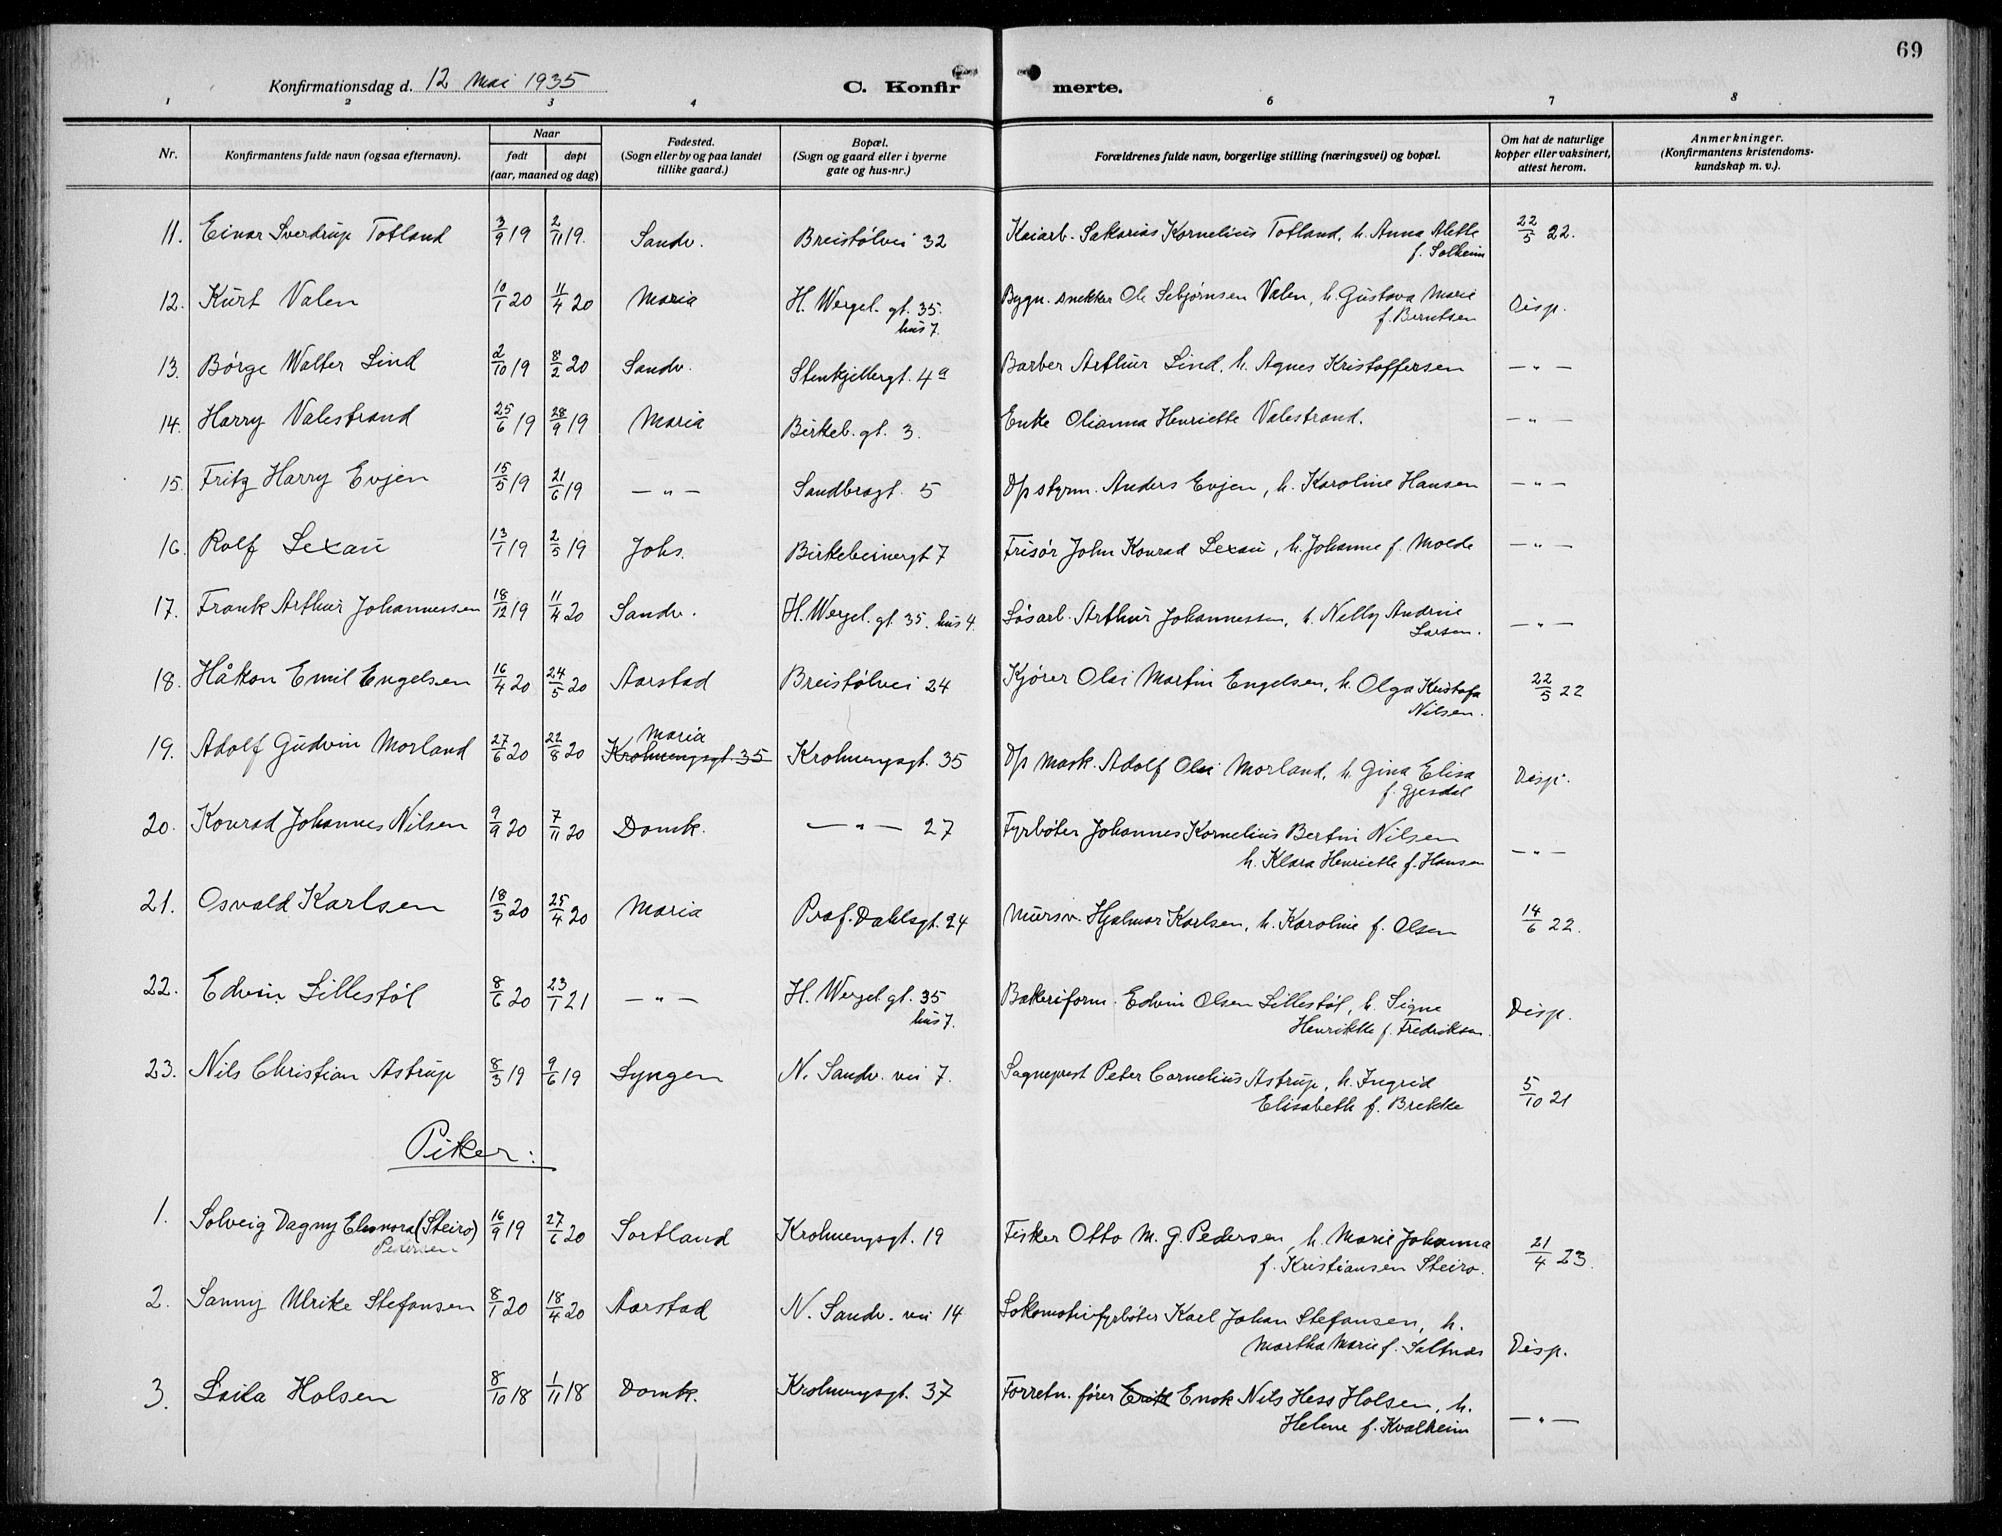 69
Konfirmationsdag d. 12 Mai 1935 C. Konfirmerte.
1 2 3 4 6 7 8
Nr. Konfirmantens fulde navn (ogsaa efternavn). Naar født døpt (aar, maaned og dag) Fødested. (Sogn eller by og paa landet tillike gaard.) Bopæl. (Sogn og gaard eller i byerne gate og hus-nr.) Forældrenes fulde navn, borgerlige stilling (næringsvei) og bopæl. Om hat de naturlige kopper eller vaksinert, attest herom. Anmerkninger. (Konfirmantens kristendomskundskap m. v.).
11. Einar Sverdrup Totland 3/9 19 2/11 19. Sandv. Breistølvei 32 Kaiarb. Sakarias Kornelius Totland, h. Anna Alette f. Solheim 22/5 22.
12. Kurt Valen 10/1 20 11/4 20 Maria H. Wergel. gt. 35. hus 7. Bygn. snekker Ole Sebjørnsen Valen, h. Gustava Marie f. Berntsen Disp.
13. Børge Walter Lind 2/10 19 8/2 20 Sandv. Stenkjellergt. 4a Barber Arthur Lind, h. Agnes Kristoffersen — " —
14. Harry Valestrand 25/6 19 28/9 19 Maria Birkeb. gt. 3. Enke Olianna Henriette Valestrand. — " —
15. Fritz Harry Evjen 15/5 19 21/6 19 — " — Sandbrogt. 5 D/p styrm. Anders Evjen, h. Karoline Hansen — " —
16. Rolf Lexau 13/1 19 2/5 19 Johs. Birkebeinergt 7 Frisør John Konrad Lexau, h. Johanne f. Molde — " —
17. Frank Arthur Johannessen 18/12 19 11/4 20 Sandv. H. Wergel. gt. 35. hus 4. Løsarb. Arthur Johannessen, h. Nelly Andrine Larsen. — " —
18. Håkon Emil Engelsen 16/4 20 24/5 20 Aarstad Breistølvei 24 Kjører Olai Martin Engelsen, h. Olga Kristofa Nilsen. 22/5 22
19. Adolf Gudvin Morland 27/6 20 22/8 20 Maria Krohnengsgt. 35 Krohnengsgt. 35 D/p Mask. Adolf Olai Morland, h. Gina Elisa f. Gjesdal Disp.
20. Konrad Johannes Nilsen 9/9 20 7/11 20 Domk. — " — 27 Fyrbøter Johannes Kornelius Bertin Nilsen h. Klara Henriette f. Hansen — " —
21. Osvald Karlsen 18/3 20 25/4 20 Maria Prof. Dahlsgt. 24 Mursv. Hjalmar Karlsen, h. Karoline f. Olsen 14/6 22.
22. Edvin Lillestøl 8/6 20 23/1 21 — " — H. Wergel gt. 35 hus 7. Bakeriform. Edvin Olsen Lillestøl, h. Signe Henrikke f. Fredriksen. Disp.
23. Nils Christian Astrup 8/3 19 9/6 19 Lyngen N. Sandv. vei 7. Sogneprest Peter Cornelius Astrup, h. Ingrid Elisabeth f. Brekke 5/10 21
Piker:
1. Solveig Dagny Elonora (Steiro) Pedersen 16/9 19 27/6 20 Sortland Krohnengsgt. 19 Fisker Otto M. G. Pedersen, h. Marie Johanna f. Kristiansen Steiro. 21/4 23.
2. Sanny Ulrike Stefansen 8/1 20 18/4 20 Aarstad N. Sandv. vei 14 Lokomotivfyrbøter Karl Johan Stefansen, h. Martha Marie f. Saltnes Disp.
3. Laila Holsen 8/10 18 1/11 18 Domk. Krohnengsgt. 37 Forretn. fører Enok Nils Hess Holsen, h. Helene f. Kvalheim — " —